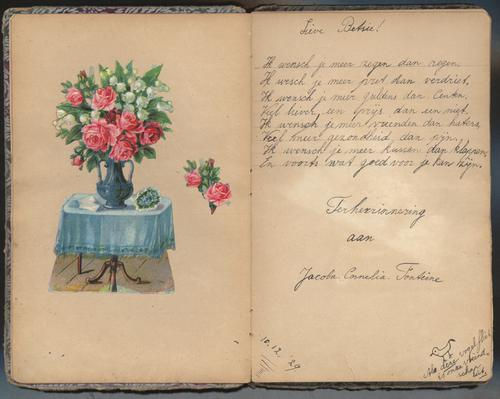 Lieve Betsie!
Ik wensch je meer zegen dan regen.
Ik wesch je meer pret dan verdriet,
Ik wensch je meer guldens dan Centen.
Veel liever een prijs, dan een niet.
Ik wensch je meer vrienden dan haters,
Veel meer gezondheid dan pijn.
Ik wensch je meer kussen dan klappen,
En voorts wat goed voor je kan zijn.
Ter herrinnering
aan
Jacoba Cornelia Fonteine
10.12 '29
Als deze vogel fluit
is onze vriend
schap
uit